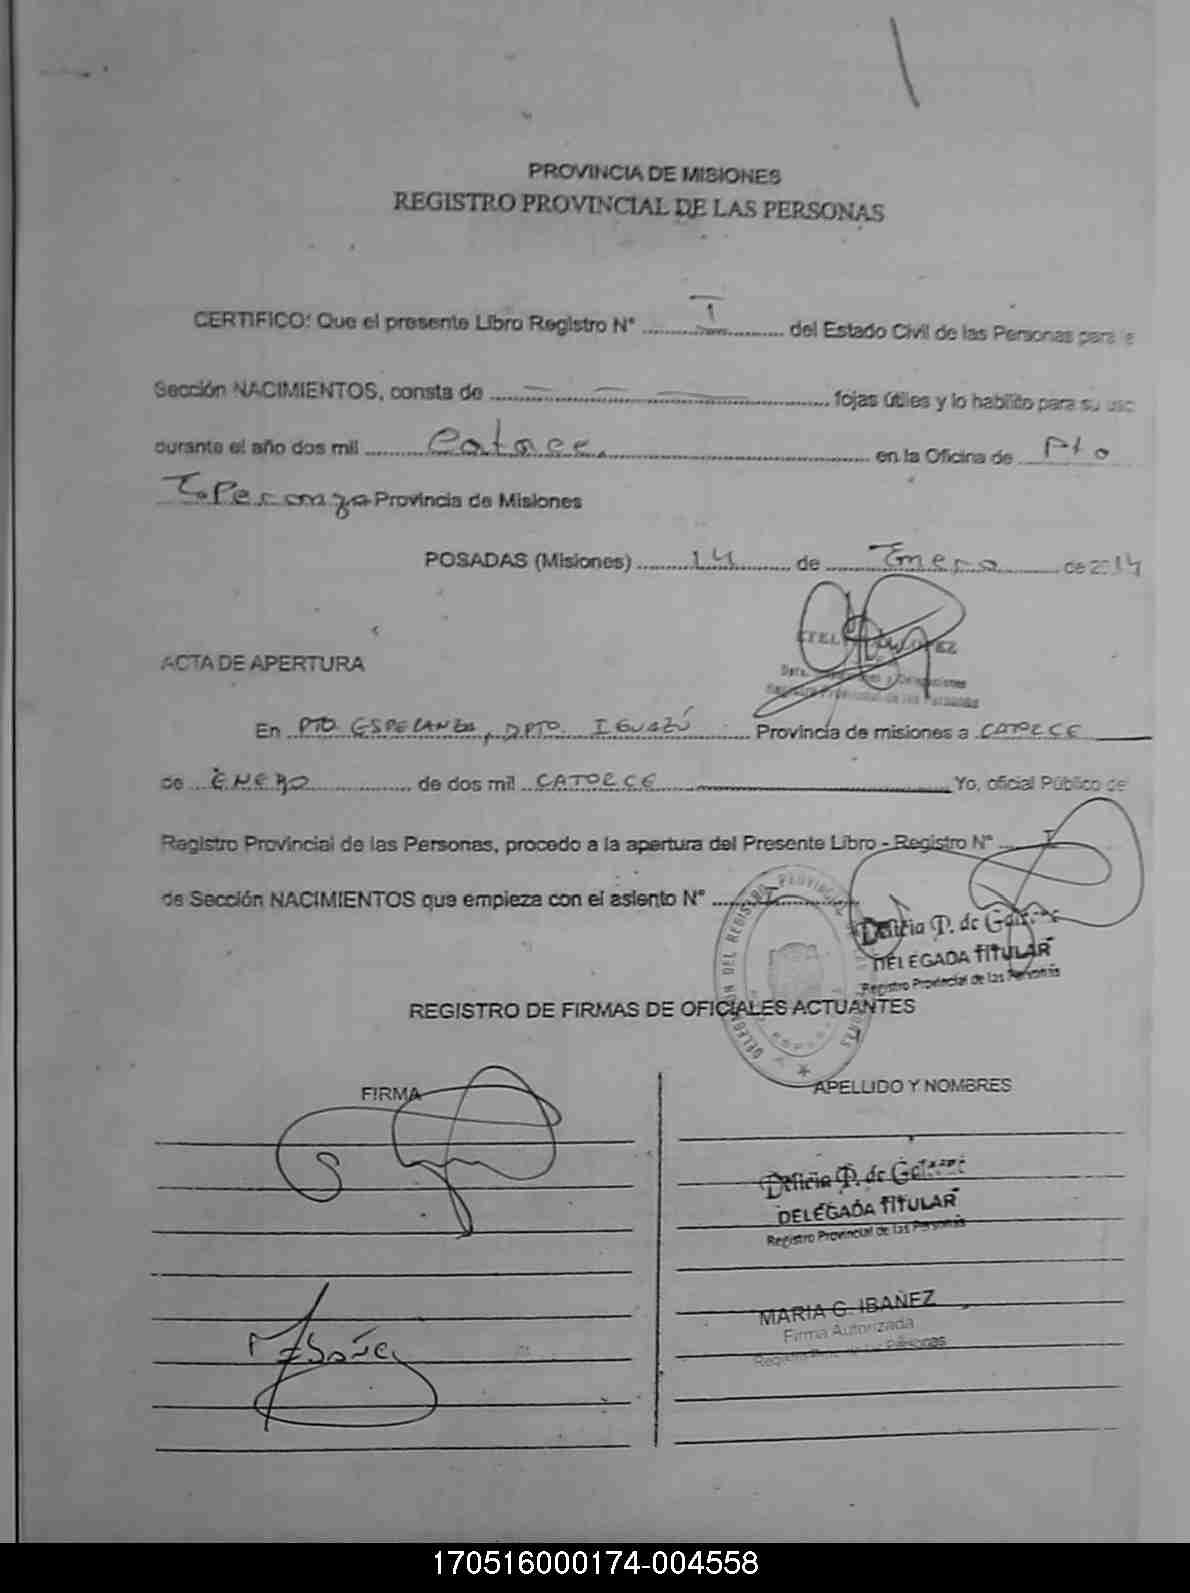 PROVINCIA DE MISIONES
REGISTRO PROVINCIAL DE LAS PERSONAS
CERTIFICO: Que el presente Libro Registro N° I del Estado Civil de las Personas para la
Sección NACIMIENTOS, consta de fojas útiles y lo habilito para su uso
durante el año dos mil Catorce. en la Oficina de Pto
Esperanza Provincia de Misiones
POSADAS (Misiones) 14 de Enero de 2014
LOPEZ
ACTA DE APERTURA
Registro Provincial de las Personas
En PTO. ESPERANZA, DPTO. IGUAZÚ Provincia de misiones a CATORCE
de ENERO de dos mil CATORCE Yo, oficial Público de
Registro Provincial de las Personas, procedo a la apertura del Presente Libro - Registro N° I
de Sección NACIMIENTOS que empieza con el asiento N° I
Delicia P. de
DELEGADA TITULAR
Registro Provincial de las Personas
REGISTRO DE FIRMAS DE OFICIALES ACTUANTES
FIRMA APELLIDO Y NOMBRES
Delicia P. de
DELEGADA TITULAR
Registro Provincial de las Personas
MARIA G. IBAÑEZ
Firma Autorizada
170516000174-004558